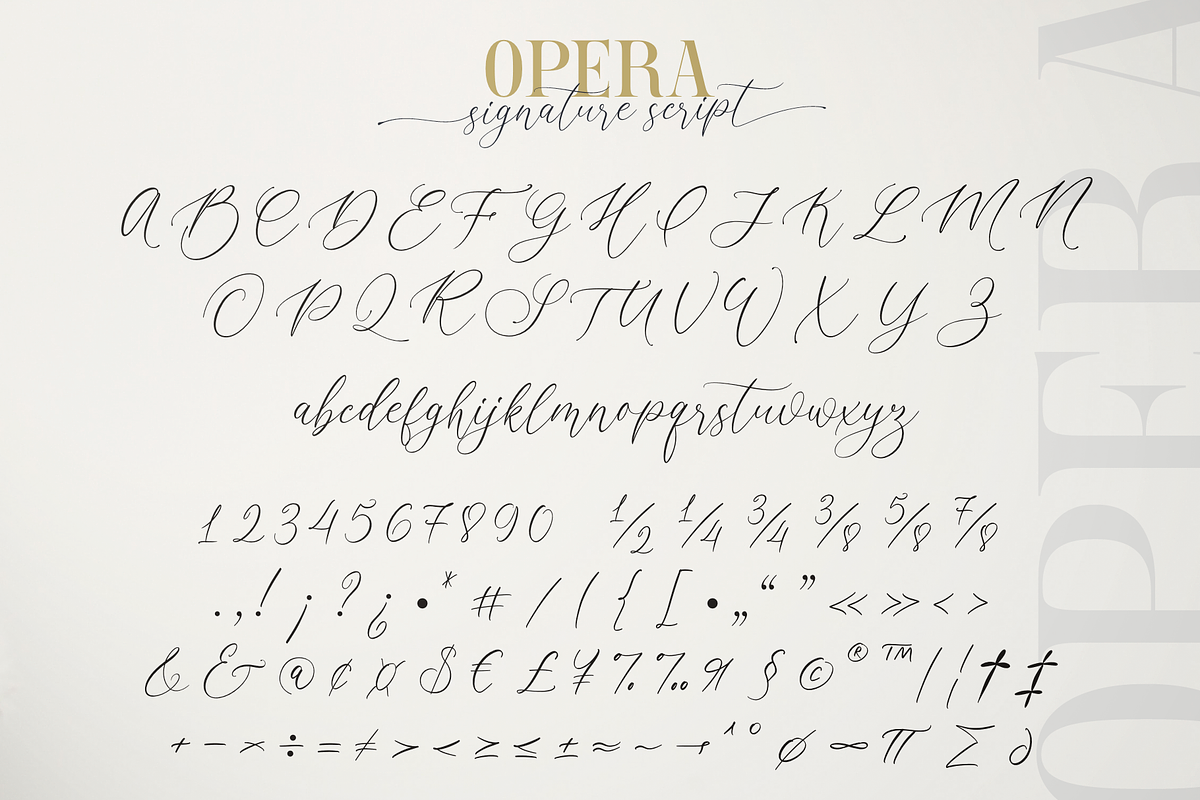 OPERA
signature script
A B C D E F G H I J K L M N
O P Q R S T U V W X Y Z
abcdefghijklmnopqrstuvwxyz
1 2 3 4 5 6 7 8 9 0 ½ ¼ ¾ ⅜ ⅝ ⅞
. , ! ¡ ? ¿ • * # / ( { [ • „ “ ” « » < >
& & @ ¢ ¤ $ € £ ¥ % ‰ § © ® ™ | ¦ † ‡
+ − × ÷ = ≠ > < ≥ ≤ ± ≈ ~ ¬ ^ ° ∅ ∞ π ∑ ∂
OPERA